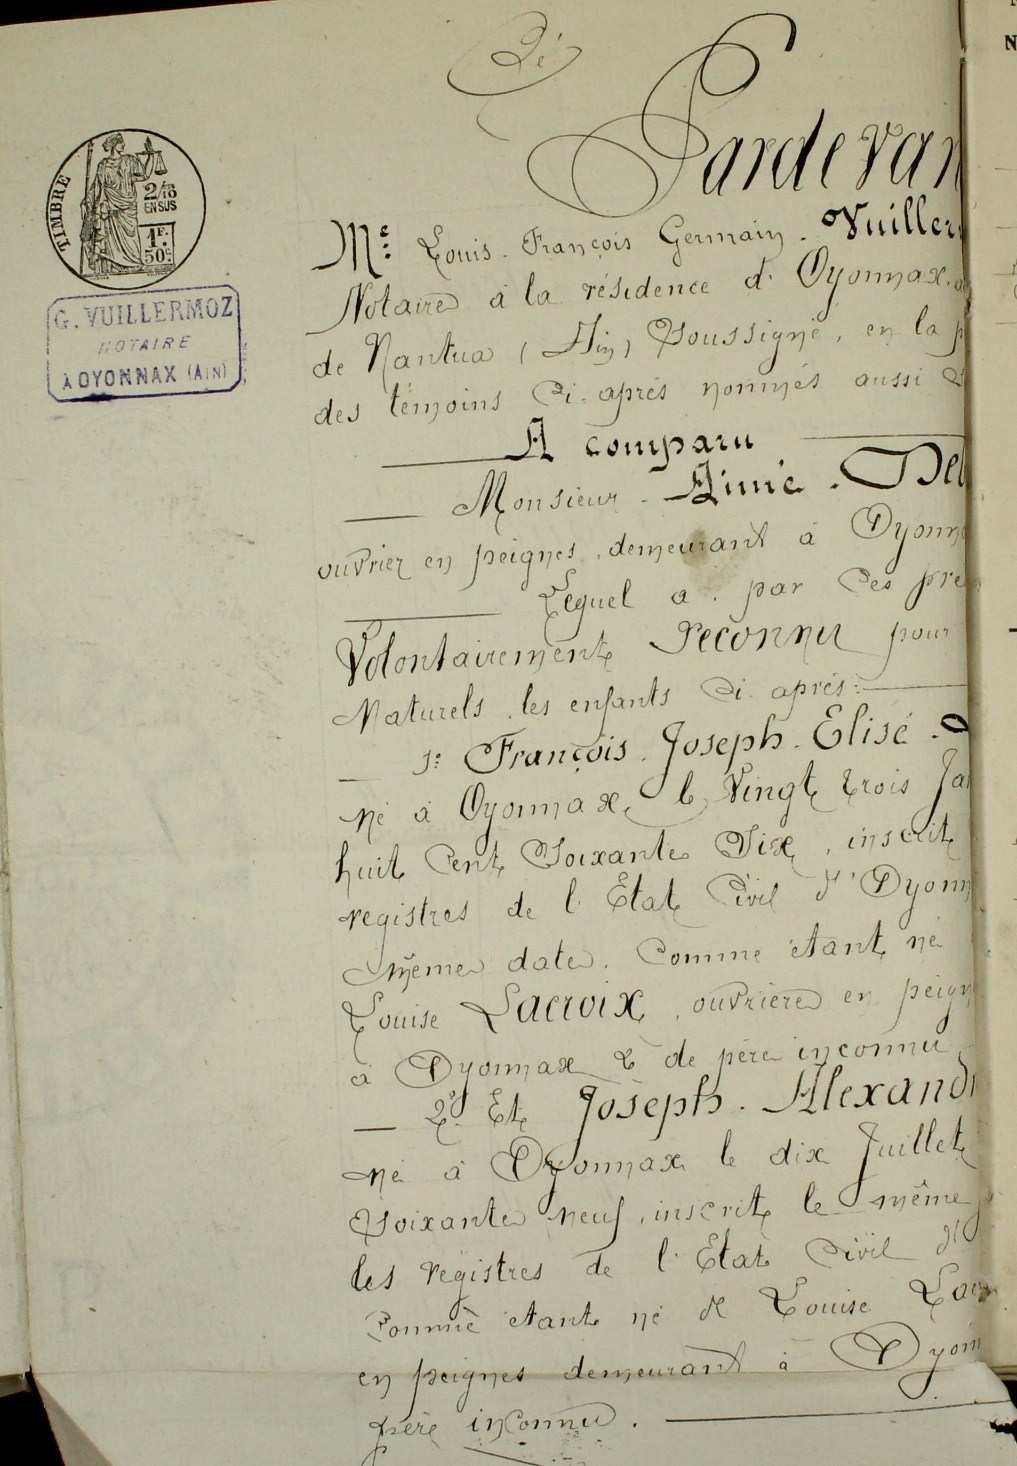 N
Pardevan
TIMBRE
2/10
EN SUS
1F.
50c.
G. VUILLERMOZ
NOTAIRE
À OYONNAX (AIN)
Me. Louis. François Germain. Vuiller
Notaire à la résidence d'Oyonnax. a
de Nantua (Ain) Soussigné, en la p
des témoins Ci. après nommés aussi S
A comparu
Monsieur. Aimé. Del
ouvrier en peignes, demeurant à Oyonna
Lequel a. par Ces pre
Volontairement reconnu pour
Naturels, les enfants Ci. après:
1: François. Joseph. Elisé.
né à Oyonnax, le Vingt trois Jan
huit Cent Soixante Six, inscrit
registres de l'Etat Civil d'Oyonn
même date. Comme étant né
Louise Lacroix, ouvrière en peign
à Oyonnax & de père inconnu
2°. Et Joseph. Alexand
né à Oyonnax le dix Juillet
Soixante neuf, inscrit le même
les registres de l'Etat Civil d'
Comme étant né de Louise Lacr
en peignes demeurant à Oyonn
père inconnu.